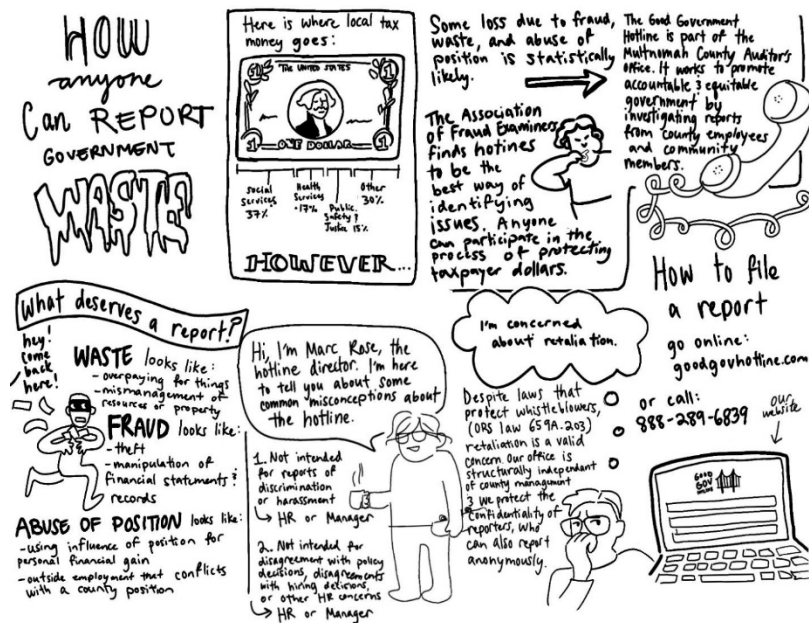 HOW
anyone
Can REPORT
GOVERNMENT
WASTE
Here is where local tax
money goes:
THE UNITED STATES
1
1
1
ONE DOLLAR
Social
Services
37%
Health
Services
-17%
Public
Safety &
Justice 15%
Other
30%
HOWEVER...
Some loss due to fraud,
waste, and abuse of
position is statistically
likely.
The Association
of Fraud Examiners
finds hotines
to be the
best way of
identifying
issues. Anyone
can participate in the
process of protecting
taxpayer dollars.
The Good Government
Hotline is part of the
Multnomah County Auditor's
office. It works to promote
accountable & equitable
government by
investigating reports
from county employees
and community
members.
What deserves a report?
hey!
come
back
here!
WASTE looks like:
- overpaying for things
- mismanagement of
resources or property
FRAUD looks like:
- theft
- manipulation of
financial statements &
records
ABUSE OF POSITION looks like:
- using influence of position for
personal financial gain
- outside employment that conflicts
with a county position
Hi, I'm Marc Rose, the
hotline director. I'm here
to tell you about some
common misconceptions about
the hotline.
1. Not intended
for reports of
discrimination
or harassment
→ HR or Manager
2. Not intended for
disagreement with policy
decisions, disagreements
with hiring decisions,
or other HR concerns
→ HR or Manager
I'm concerned
about retaliation.
Despite laws that
protect whistleblowers,
(ORS law 659A.203)
retaliation is a valid
concern. Our office is
structurally independent
of county management
& we protect the
confidentiality of
reporters, who
can also report
anonymously.
How to file
a report
go online:
goodgovhotline.com
or call:
888-289-6839
our
website
GOOD
GOV